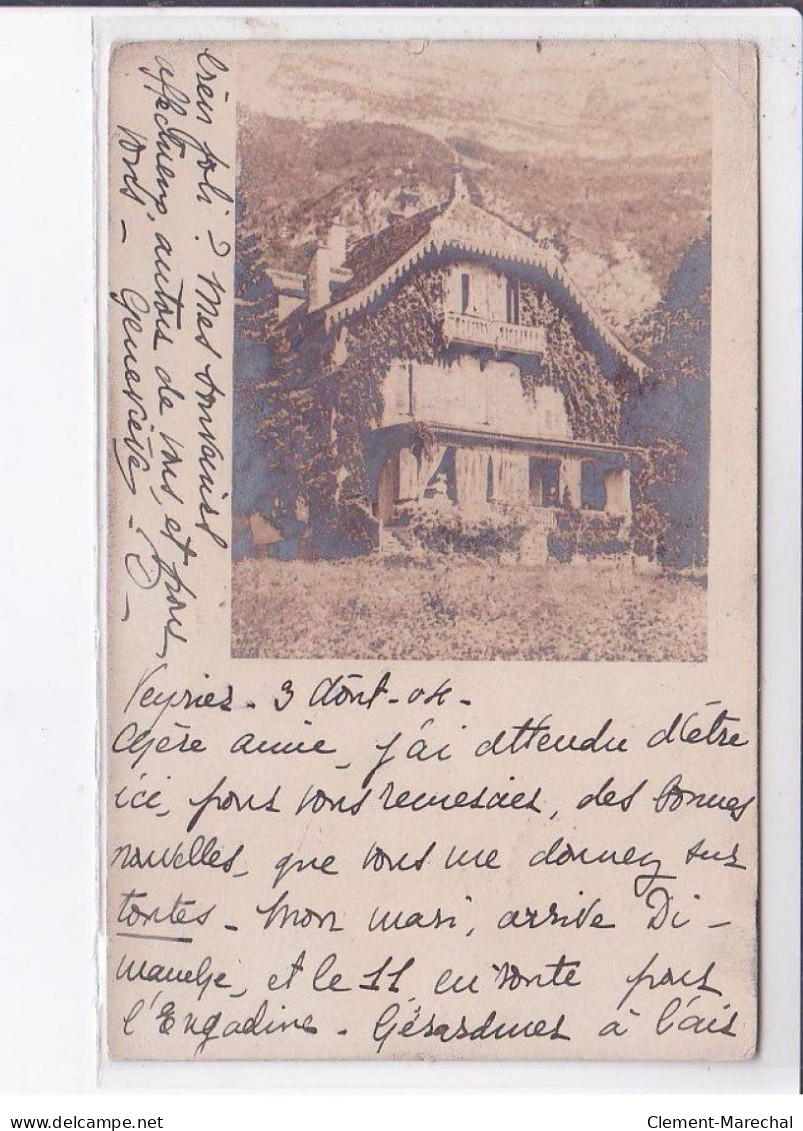 Veyrier. 3 Août - 04 -
Chère amie, j'ai attendu d'être
ici, pour vous remercier, des bonnes
nouvelles, que vous me donnez sur
toutes. Mon mari, arrive Di-
manche, et le 11 en route pour
l'Engadine. Gérardmer à l'air
très joli ? Mes souvenirs
affectueux, autour de vous, et pour
vous - Geneviève.
Clement-Marechal